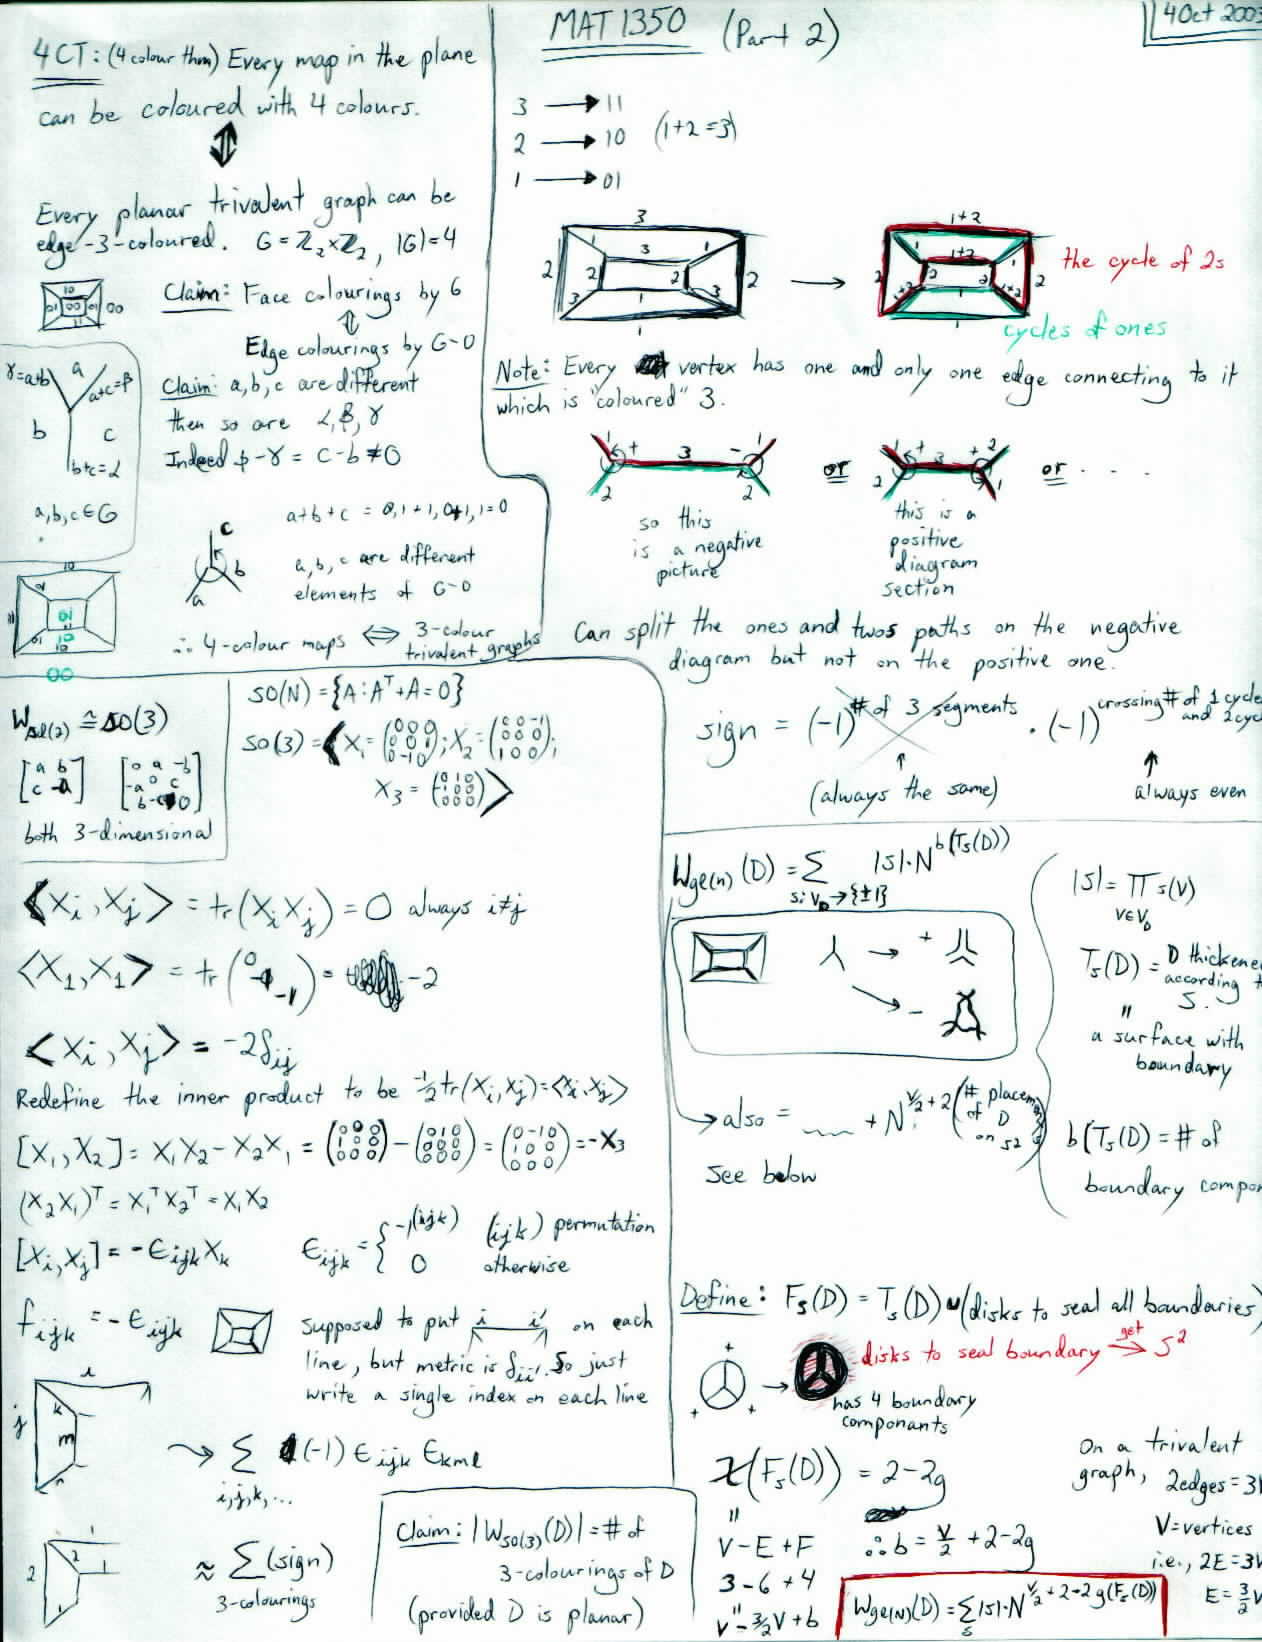 MAT 1350 (Part 2)
14 Oct 2003
4CT: (4 colour thm) Every map in the plane
can be coloured with 4 colours.
⇕
Every planar trivalent graph can be
edge-3-coloured. G = Z₂×Z₂, |G|=4
10
01 00 01 00
11
Claim: Face colourings by G
⇕
Edge colourings by G-0
γ=a+b a a+c=β
b c
b+c=α
a,b,c ∈ G
Claim: a,b,c are different
then so are α,β,γ
Indeed β-γ = c-b ≠ 0
c
b
a
a+b+c = 0,1+1,0+1,1=0
a,b,c are different
elements of G-0
10
01
11
01
10
00
∴ 4-colour maps ⟺ 3-colour
trivalent graphs
3 → 11
2 → 10 (1+2=3)
1 → 01
3
1 3 1
2 2 2 2
3 1 3
1
→
1+2
1 1+2 1
2 2 2 2
1+2 1 1+2
1
the cycle of 2s
cycles of ones
Note: Every vertex has one and only one edge connecting to it
which is "coloured" 3.
1 + 3 - 1
2 2
or
1 + 3 + 2
2 1
or . . .
so this
is a negative
picture
this is a
positive
diagram
section
Can split the ones and twos paths on the negative
diagram but not on the positive one.
sign = (-1)^# of 3 segments · (-1)^crossing # of 1 cycle and 2 cyc
(always the same)
always even
W_sl(2) ≅ so(3)
[a b; c -a] [0 a -b; -a 0 c; b -c 0]
both 3-dimensional
so(N) = {A : Aᵀ+A=0}
so(3) = < X₁ = (0 0 0; 0 0 1; 0 -1 0); X₂ = (0 0 -1; 0 0 0; 1 0 0);
X₃ = (0 1 0; -1 0 0; 0 0 0) >
<Xᵢ, Xⱼ> = tr(XᵢXⱼ) = 0 always i≠j
<X₁, X₁> = tr(0 -1 -1) = -2
<Xᵢ, Xⱼ> = -2δᵢⱼ
Redefine the inner product to be -½tr(Xᵢ,Xⱼ)=<Xᵢ,Xⱼ>
[X₁,X₂] = X₁X₂ - X₂X₁ = (0 0 0; 1 0 0; 0 0 0) - (0 1 0; 0 0 0; 0 0 0) = (0 -1 0; 1 0 0; 0 0 0) = -X₃
(X₂X₁)ᵀ = X₁ᵀX₂ᵀ = X₁X₂
[Xᵢ,Xⱼ] = -εᵢⱼₖXₖ
εᵢⱼₖ = { -1^(ijk) (ijk) permutation
0 otherwise
fᵢⱼₖ = -εᵢⱼₖ
supposed to put i i' on each
line, but metric is δᵢᵢ'. So just
write a single index on each line
i
j k
m
n
⇝ Σ (-1) εᵢⱼₖ εₖₘₗ
i,j,k,...
1
2 2 1
1
≈ Σ(sign)
3-colourings
Claim: |W_so(3)(D)| = # of
3-colourings of D
(provided D is planar)
W_gl(n)(D) = Σ |s|·N^b(Tₛ(D))
s: V_D → {±1}
→ +
→ -
|s| = Π s(v)
v∈V_D
Tₛ(D) = D thickene
according t
s.
"
a surface with
boundary
b(Tₛ(D) = # of
boundary compo
→ also = ___ + N^(v/2+2) (# placemen
of D
on S²)
see below
Define: Fₛ(D) = Tₛ(D) ∪ (disks to seal all boundaries)
+
+ +
→
disks to seal boundary get → S²
has 4 boundary
componants
χ(Fₛ(D)) = 2-2g
"
V-E+F
3-6+4
"
V-3/2V+b
∴ b = V/2 + 2-2g
On a trivalent
graph, 2edges = 3V
V=vertices
i.e., 2E=3V
E=3/2V
W_gl(N)(D) = Σₛ |s|·N^(V/2+2-2g(Fₛ(D)))